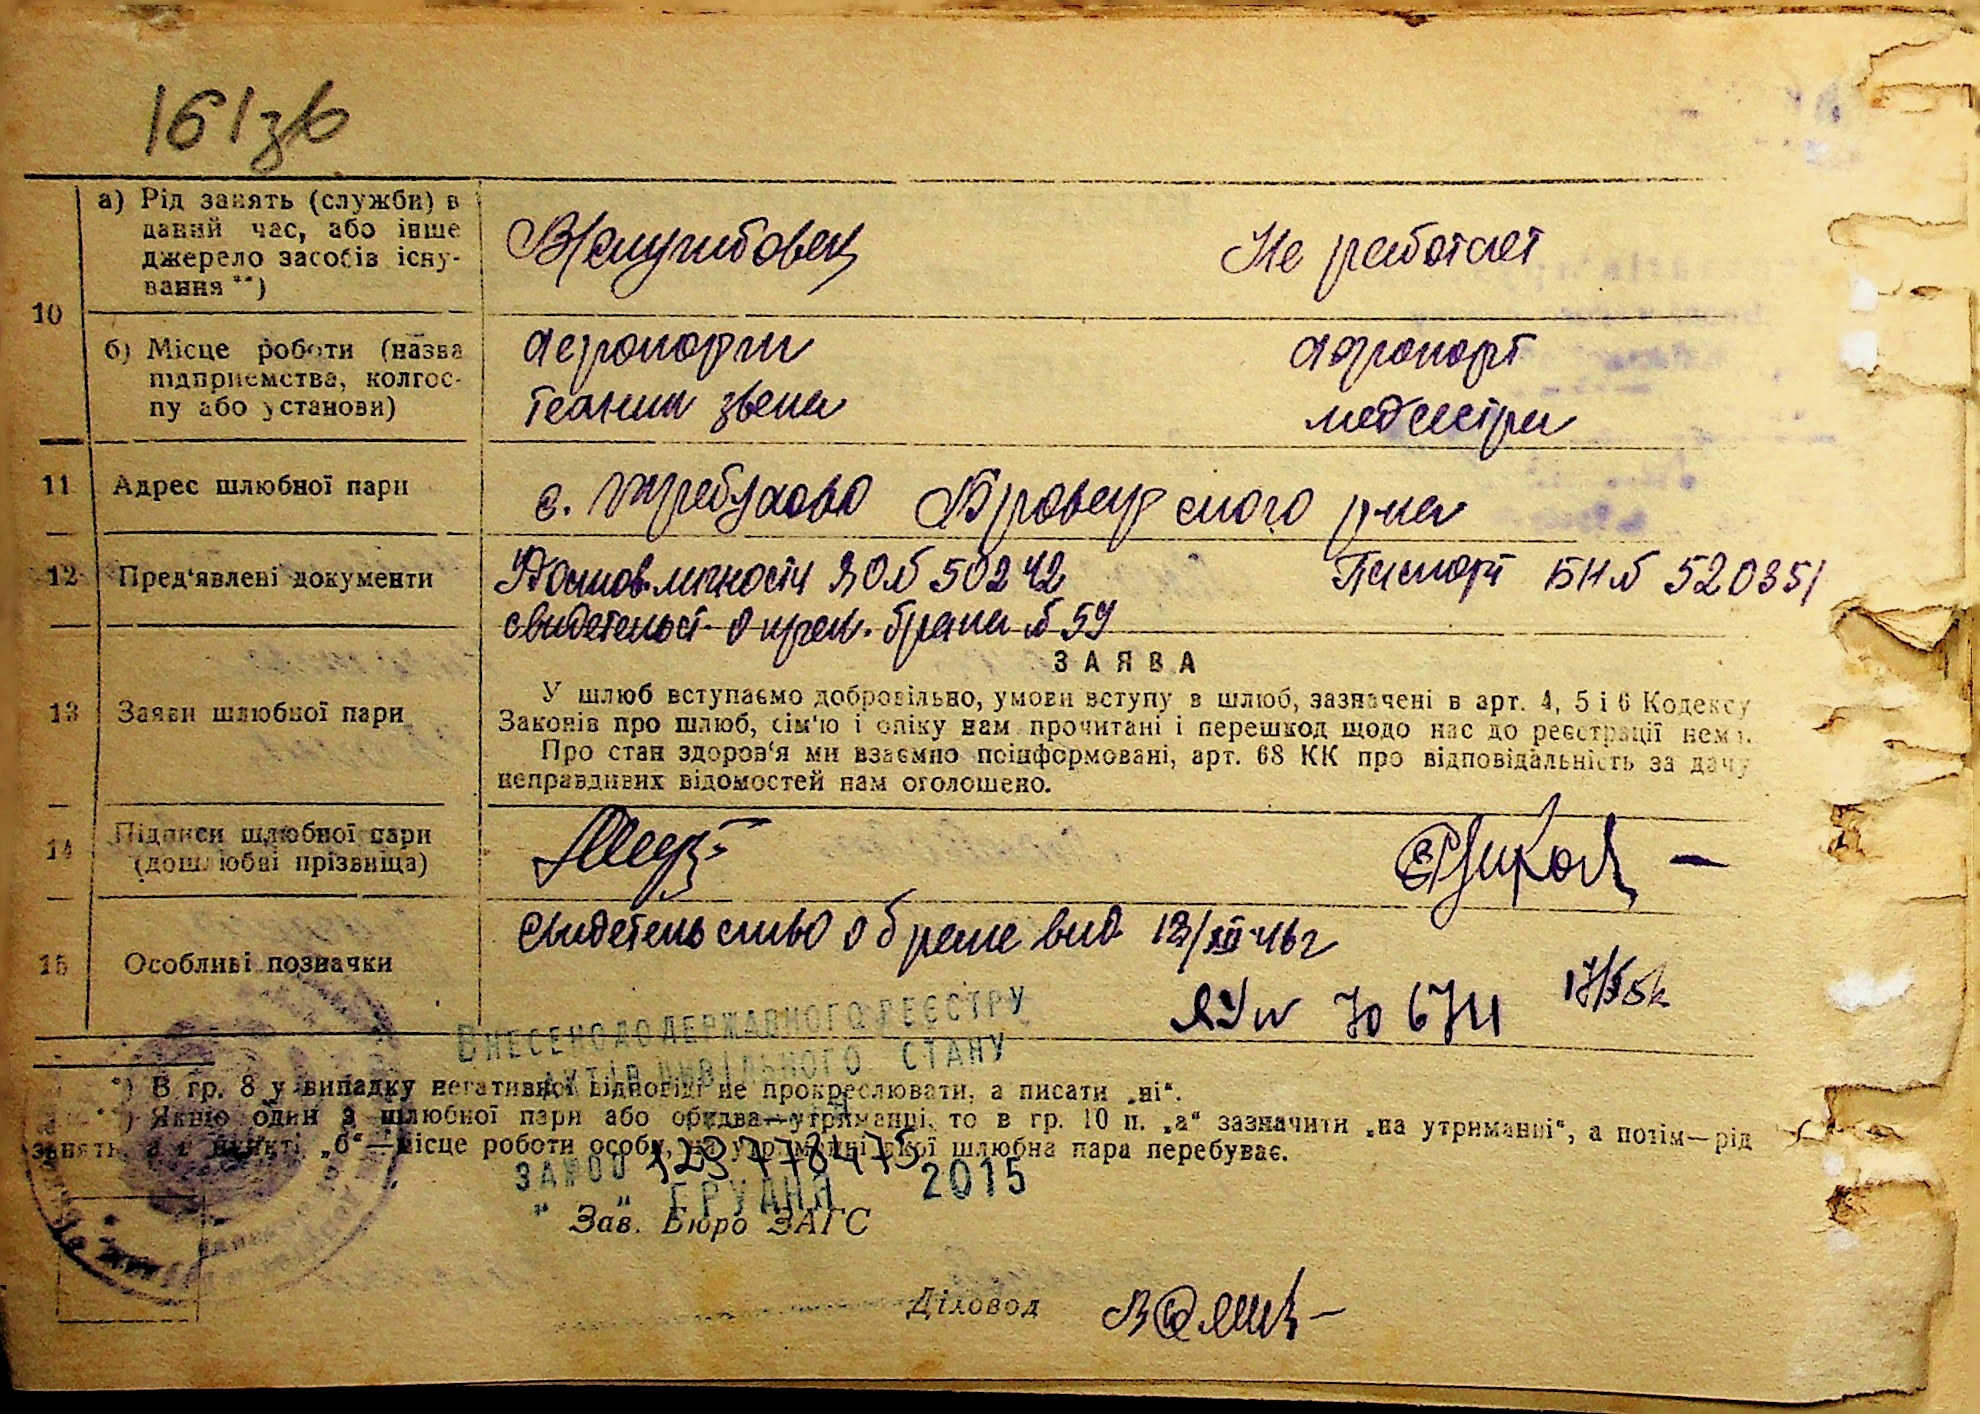 161зв
10
а) Рід занять (служби) в даний час, або інше джерело засобів існування **)
В/служибовец
Не работает
б) Місце роботи (назва підприємства, колгоспу або установи)
аеропорти
техник звена
аэропорт
медсестра
11 Адрес шлюбної пари
с. Требухово Броварского р-на
12 Пред'явлені документи
Удостов. личности ЯО № 50242
Паспорт БН № 520351
свидетельст. о прек. брака № 59
13 Заяви шлюбної пари
ЗАЯВА
У шлюб вступаємо добровільно, умови вступу в шлюб, зазначені в арт. 4, 5 і 6 Кодексу
Законів про шлюб, сім'ю і опіку нам прочитані і перешкод щодо нас до реєстрації нема.
Про стан здоров'я ми взаємно поінформовані, арт. 68 КК про відповідальність за дачу
неправдивих відомостей нам оголошено.
14 Підписи шлюбної пари (дошлюбні прізвища)
15 Особливі позначки
Свидетельство о браке выд. 13/XII-46г
ЯУ № 70674
ВНЕСЕНО ДО ДЕРЖАВНОГО РЕЄСТРУ
АКТІВ ЦИВІЛЬНОГО СТАНУ
*) В гр. 8 у випадку негативної відповіді не прокреслювати, а писати „ні“.
**) Якщо один з шлюбної пари або обидва—утриманці, то в гр. 10 п. „а“ зазначити „на утриманні“, а потім—рід
занять, а в пункті „б“—місце роботи особи, на утриманні якої шлюбна пара перебуває.
ГРУДНЯ 2015
Зав. Бюро ЗАГС
Діловод